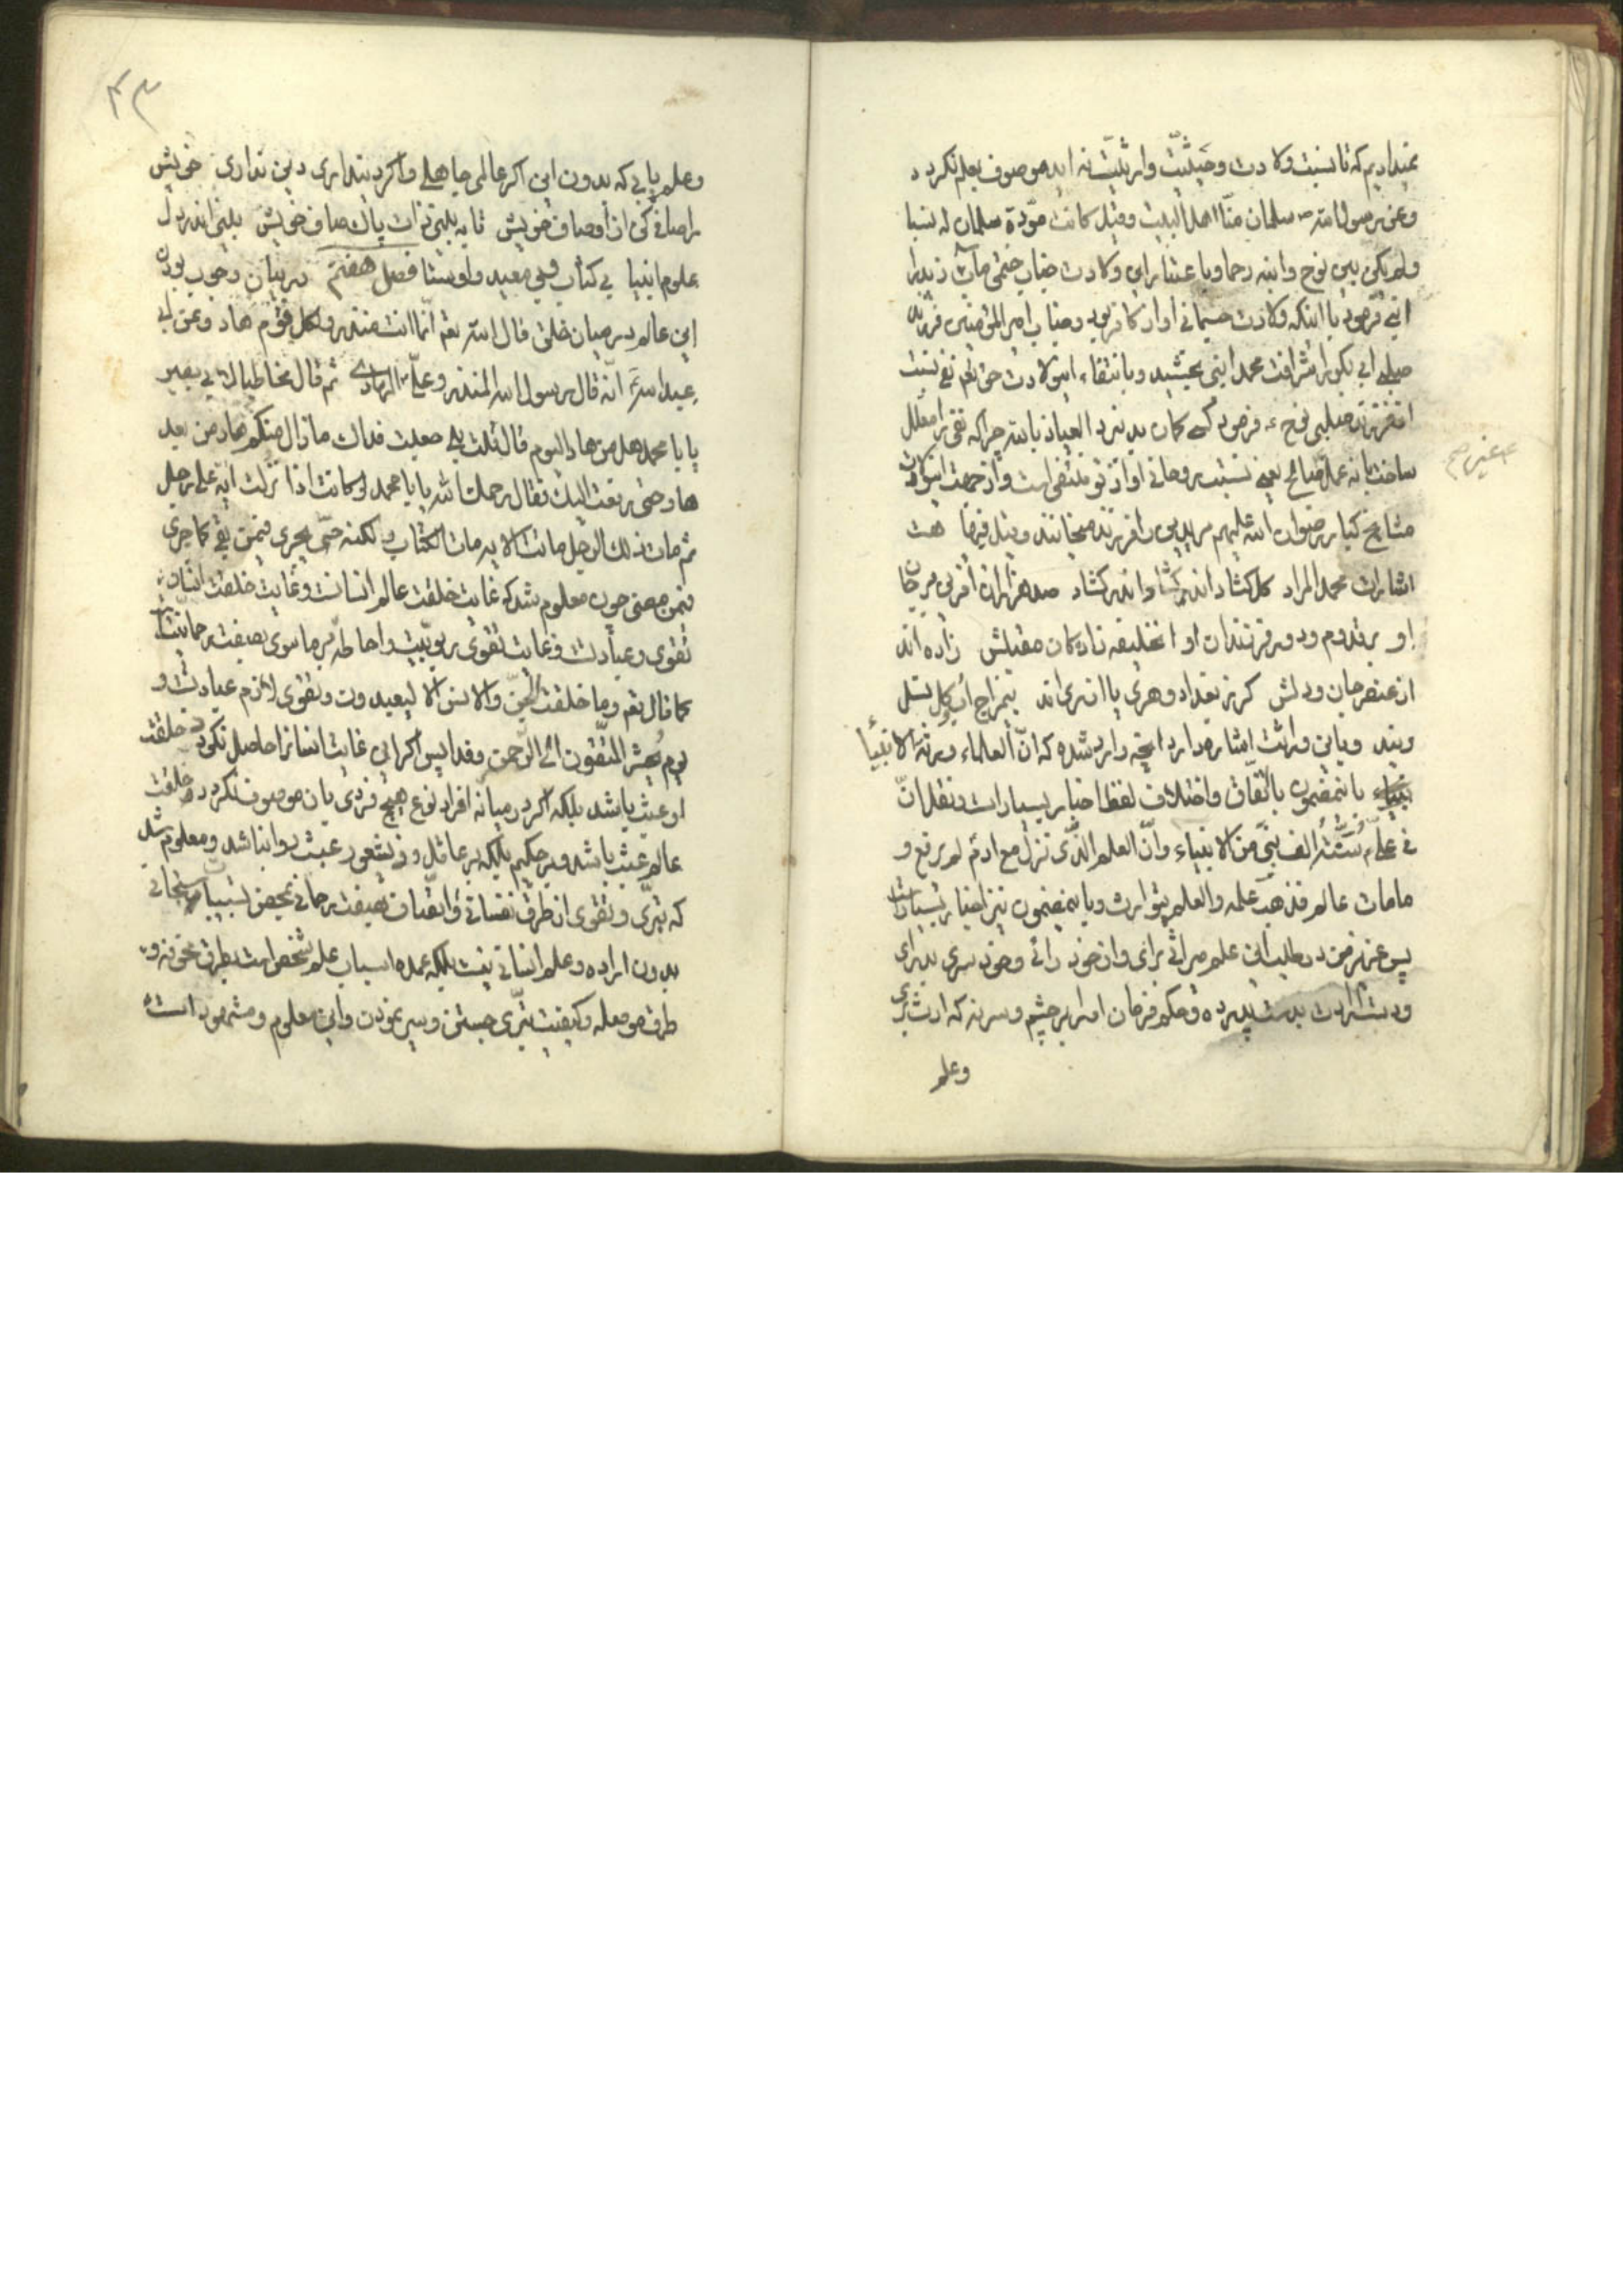 که تا نسبت ولادت و حیثیت و ارثیت نه اید موصوف بعلم نکردد
وعن رسول الله ص سلمان منا اهل البیت وقیل کانت مودة سلمان له نسبا
ولم یکن بین نوح وابنه رحما و باعتبار این ولادت جناب ختمی مآب زید را
ابنی فرمود با اینکه ولادت جسمانی او از کافر بود و جناب امیر المؤمنین فرزند
صلبی ابی بکر را شرافت محمد ابنی بخشید و بانتفاء این ولادت حق تعم نفی نسبت
از فرزند صلبی نوح ع فرمود کسی کمان بد نبرد العیاذ بالله چراکه نفی را معلل
ساخت بانه عمل صالح یعنی نسبت روحانی او از تو منتفی است و از جهت این ولادت
عمل غیر صح
مشایخ کبار رضوان الله علیهم مریدین را فرزند میخوانند وقیل فیها هست
اشارات محمد المراد کل کشاد اندر کشاد اندر کشاد صد هزاران آفرین بر جان
او بر قدوم و دور فرزندان او آن خلیفه زادکان مقبلش زاده اند
از عنصر جان و دلش کر ز بغداد و هری یا از ری اند بی مزاج آب و کل نسل
ویند و باین وراثت اشاره دارد آنچه وارد شده که ان العلماء ورثة الانبیاء
باینمضمون باتفاق و اختلاف لفظ اخبار بسیار است ونقل ان
فی علی ع سنة الف نبی من الانبیاء وان العلم الذی نزل مع ادم لم یرفع و
مامات عالم فذهب علمه والعلم یتوارث و باینمضمون نیز اخبار بسیار است
پس عزیز من در طلب این علم میراثی برای و از خود رائی و خود سری بدرای
و دست ارادت بدست پیر ده و حکم فرمان او را بر چشم و سر نه که ارث بری
وعلم
۴۳
وعلم یابی که بدون این اکر عالمی جاهلی واکر دینداری دین نداری خویش
را صافی کن از اوصاف خویش تا به بینی ذات پاک صاف خویش بینی اندر دل
علوم انبیا بی کتاب و بی معید و اوستا فصل هفتم در بیان وجوب بودن
این عالم در میان خلق قال الله تعم انما انت منذر ولکل قوم هاد وعن ابی
عبد الله ع انه قال رسول الله المنذر وعلی ع الهادی ثم قال مخاطبا لابی بصیر
یا با محمد هل من هاد الیوم قال قلت بلی جعلت فداک مازال منکم هاد من بعد
هاد حتی رفعت الیک فقال رحمک الله یا با محمد لو کانت اذا نزلت ایة علی رجل
ثم مات ذلک الرجل ماتت الایة مات الکتاب ولکنه حی یجری فیمن بقی کما جری
فیمن مضی چون معلوم شد که غایت خلقت عالم انسانست وغایت خلقت انسان
تقوی وعبادت وغایت تقوی ربوبیت واحاطه بر ماسوی بصفت رحمانیت
کما قال تعم وما خلقت الجن والانس الا لیعبدون وتقوی لازم عبادت و
یوم یحشر المتقون الی الرحمن وفدا پس اکر این غایت انسانرا حاصل نکردد خلقت
او عبث باشد بلکه اکر در میانه افراد نوع هیچ فردی بان موصوف نکردد خلقت
عالم عبث باشد و بر حکیم بلکه بر عاقل و ذیشعور عبث روا نباشد ومعلوم شد
که تبری وتقوی از طرق نفسانی واتصاف بصفت رحمانی بمحض تسبیبات سبحانی
بدون اراده وعلم انسانی نیست بلکه عمده اسباب علم شخص است بطرق مخوفه و
طرف موصله وکیفیت تبری جستن وسیر نمودن واین معلوم ومشهود است